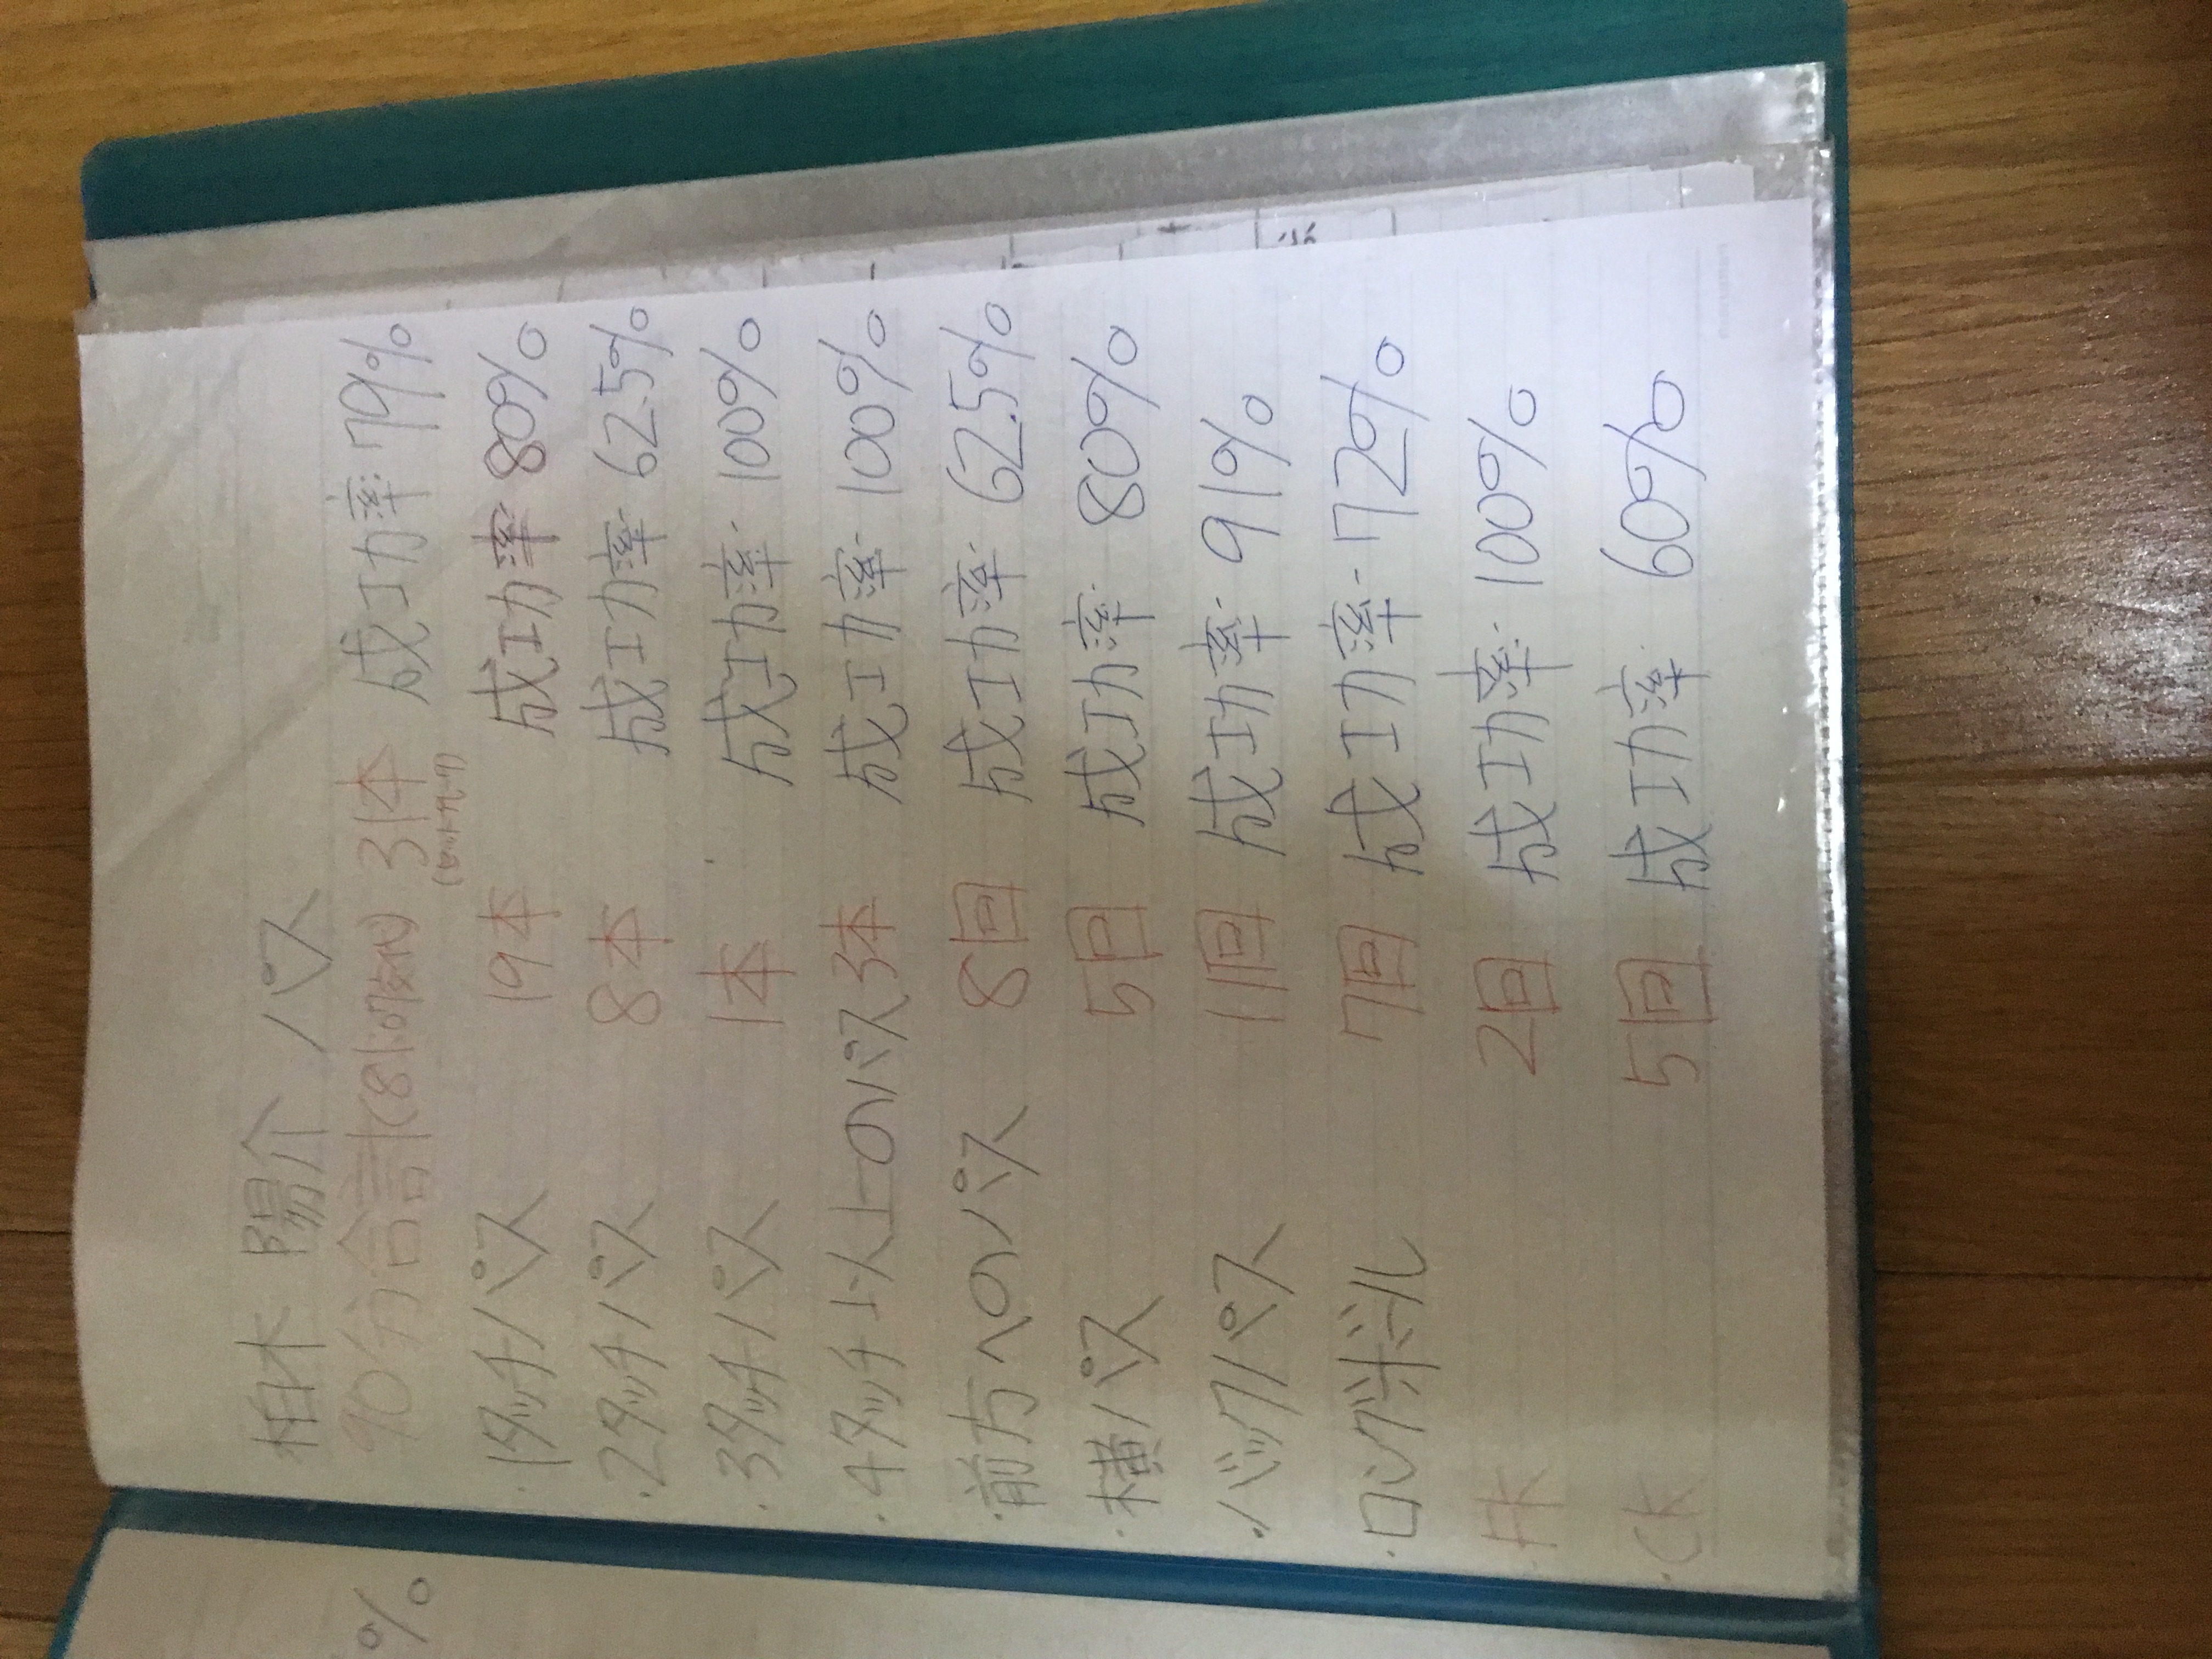 柏木 陽介 パス
90分合計(81:07交代) 31本 成功率:79%
・1タッチパス 19本 成功率 80%
・2タッチパス 8本 成功率・62.5%
・3タッチパス 1本 成功率・100%
・4タッチ以上のパス 3本 成功率・100%
・前方へのパス 8回 成功率・62.5%
・横パス 5回 成功率・80%
・バックパス 11回 成功率・91%
・ロングボール 7回 成功率・72%
・FK 2回 成功率・100%
・CK 5回 成功率・60%
%